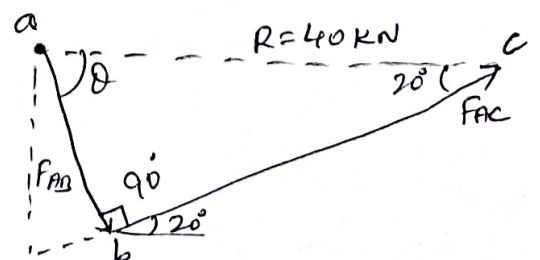 a
R=40KN
c
θ
20°
FAC
FAB
90°
20°
b